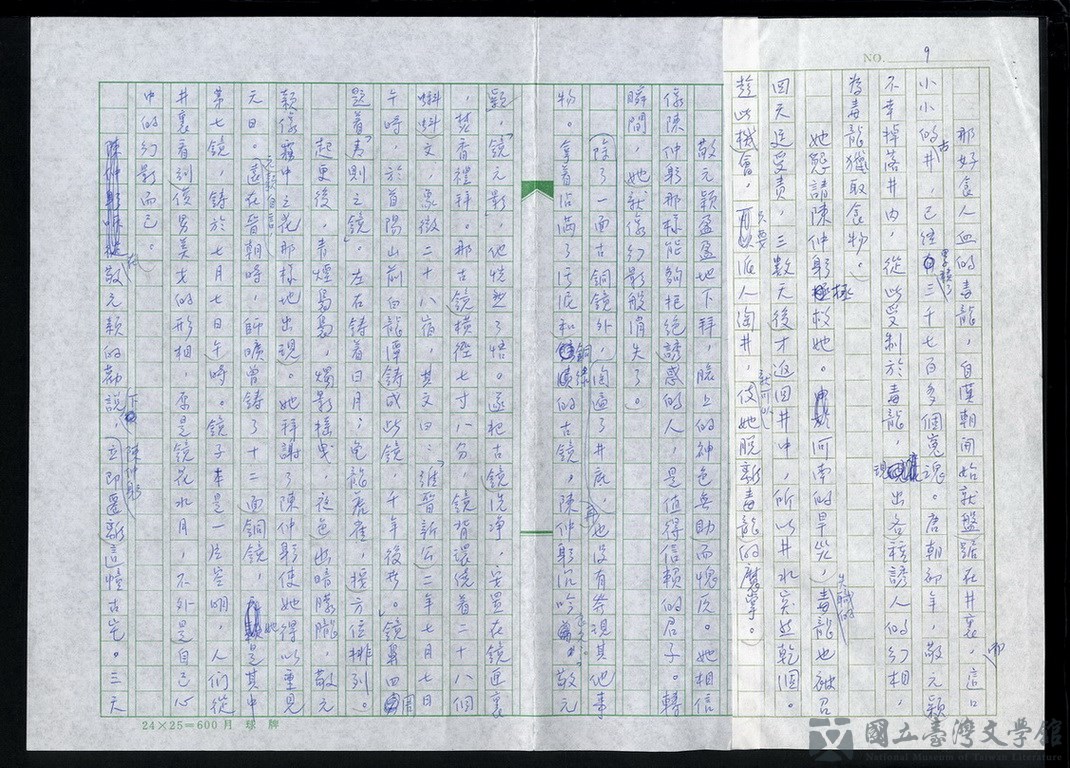 NO. 9
那好食人血的毒龍，自漢朝開始就盤踞在井裏，這口
小小的古井已經累積了三千七百多個冤魂。唐朝初年，敬元穎
不幸掉落井內，從此受制於毒龍，現出各種誘人的幻相，
為毒龍獵取食物。
她懇請陳仲躬極救她。河南的旱災，失職的毒龍也被召
回天廷受責，三數天後才返回井中，所以井水突然乾涸。
趁此機會，只要派人淘井，就可以使她脫離毒龍的魔掌。
敬元穎盈盈地下拜，臉上的神色無助而愧仄。她相信
像陳仲躬那樣能夠拒絕誘惑的人，是值得信賴的君子。轉
瞬間，她就像幻影般消失了。
除了一面古銅鏡外，淘遍了井底，再也沒有發現其他事
物。拿着沾滿了污泥和銅綠的古鏡，陳仲躬沉吟了又久。敬元
穎，鏡元影，他恍然了悟。遂把古鏡洗淨，安置在鏡匣裏
，焚香禮拜。那古鏡橫徑七寸八分，鏡背環繞着二十八個
蝌蚪文，象徵二十八宿，其文曰：「維晉新公二年七月七日
午時，於首陽山前白龍潭鑄成此鏡，千年後世。」鏡鼻四周
題着「夷則之鏡」。左右鑄着日月；龜龍虎雀，按方位排列。
起更後，青煙裊裊，燭影搖曳，夜色幽暗朦朧，敬元
穎像霧中之花那樣地出現。她拜謝了陳仲躬使她得以重見
天日。元穎自言遠在晉朝時，師曠曾鑄了十二面銅鏡，她是其中
第七鏡，鑄於七月七日午時。鏡子本是一片空明，人們從
井裏看到俊男美女的形相，原是鏡花水月，不外是自己心
中的幻影而已。
在敬元穎的勸說下，陳仲躬立即遷離這幢古宅。三天
24×25=600月 球 牌
國立臺灣文學館
National Museum of Taiwan Literature